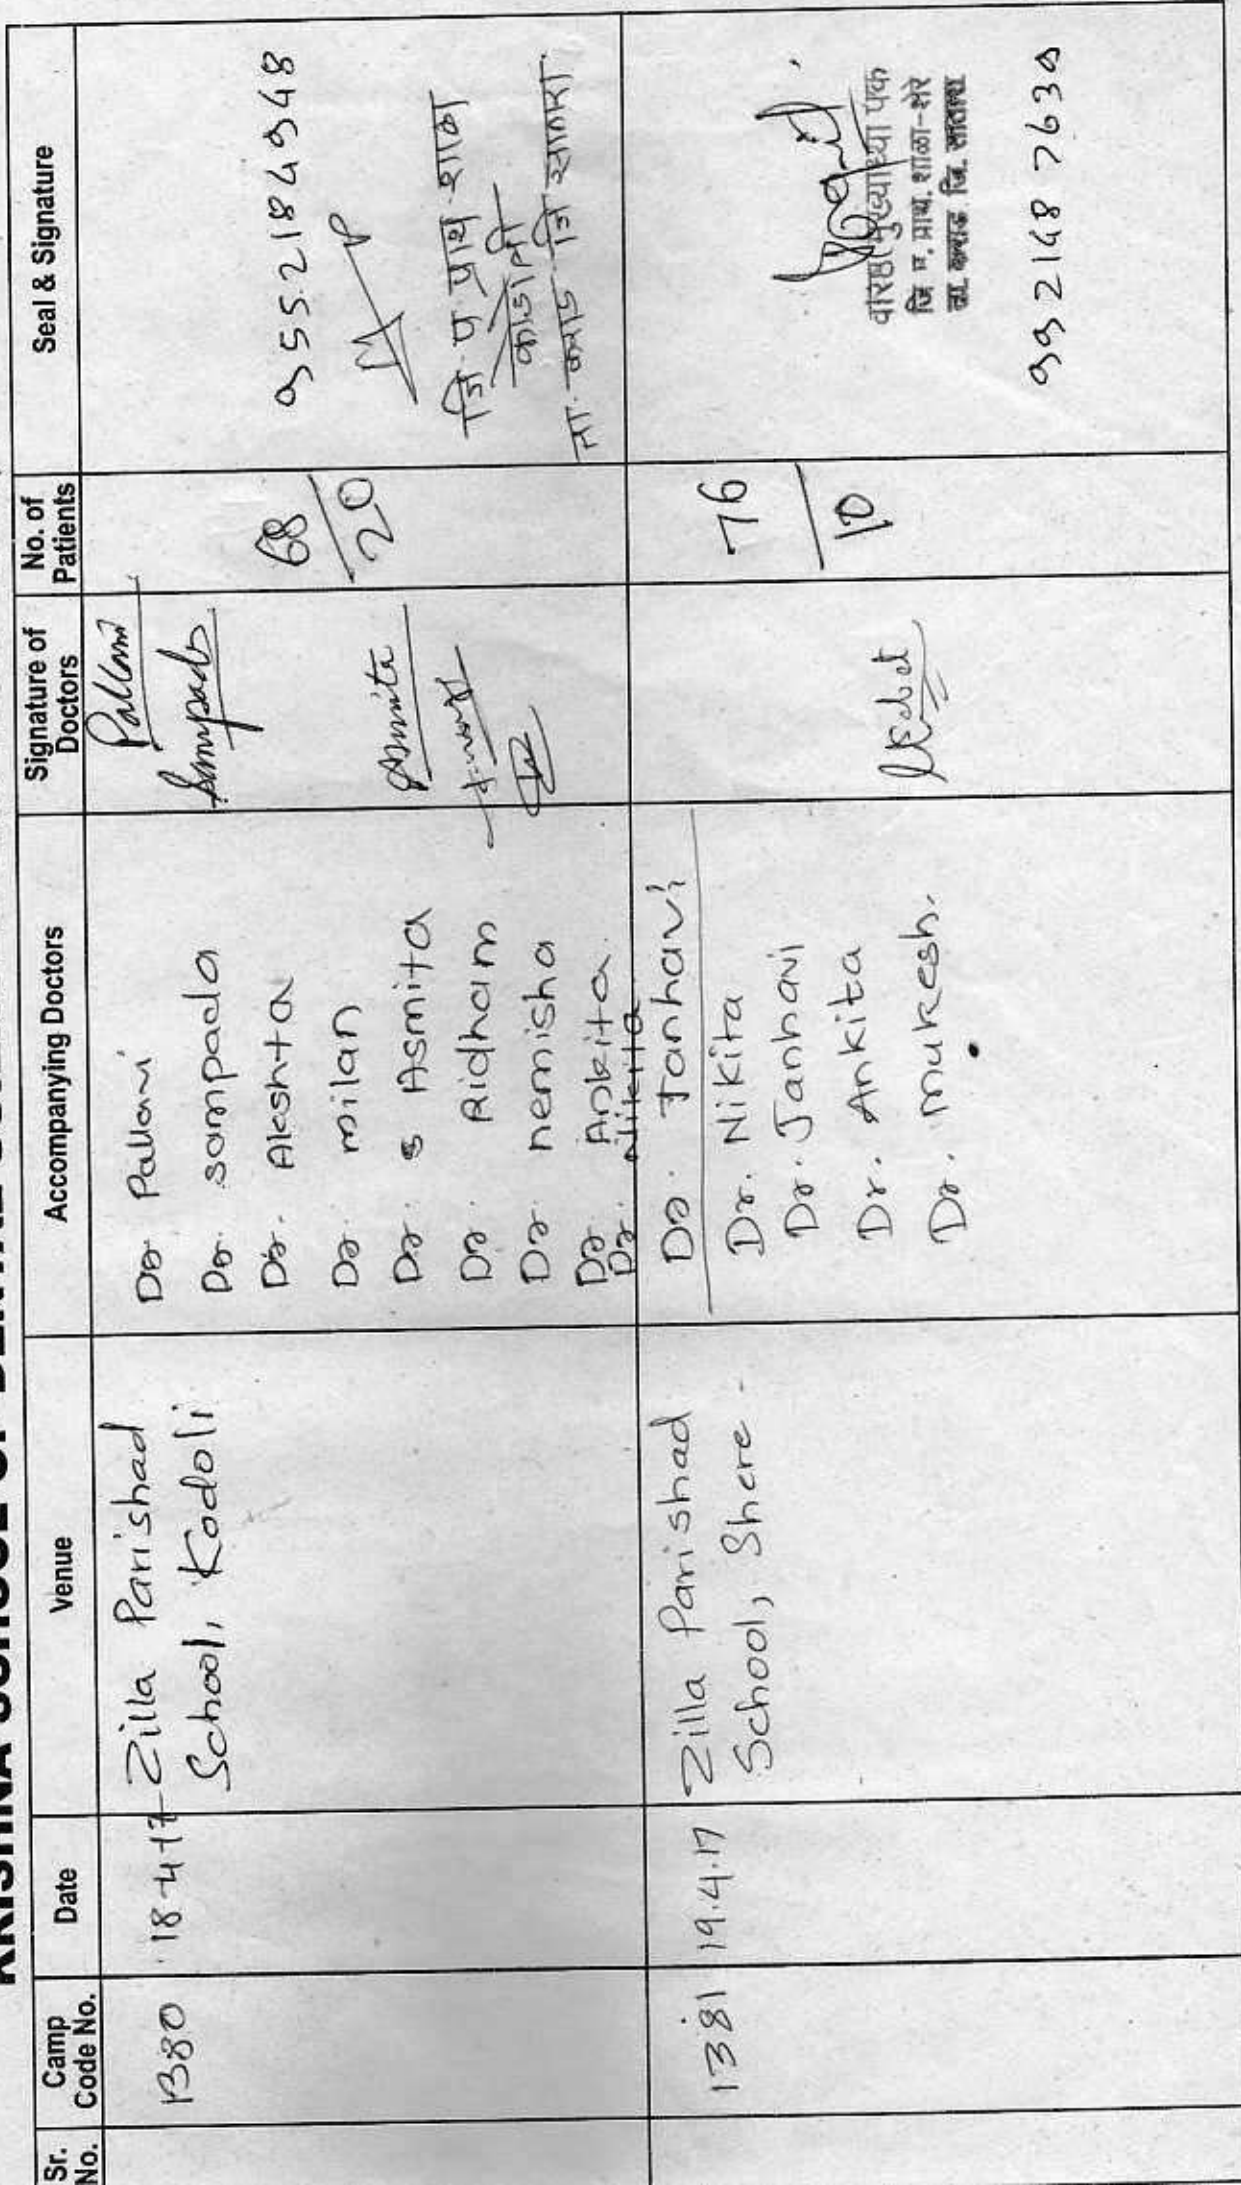 KRISHNA SCHOOL OF DENTAL
Sr. No.
Camp Code No.
Date
Venue
Accompanying Doctors
Signature of Doctors
No. of Patients
Seal & Signature
1380
18-4-17
Zilla Parishad
School, Kodoli
Dr Pallavi
Dr. sampada
Dr. Akshta
Dr. milan
Dr. s Asmita
Dr. Ridham
Dr nemisha
Dr Ankita
Dr. Nikita
Pallavi
Sampada
Asmita
68
20
9552184948
जि प प्राथ शाळा
कोडोली
ता. कराड जि सातारा.
1381
19.4.17
Zilla Parishad
School, Shere
Dr. Janhavi
Dr. Nikita
Dr. Janhavi
Dr. Ankita
Dr. mukesh.
76
10
वरिष्ठ मुख्याध्यापक
जि प. प्राथ. शाळा-शेरे
ता. कराड जि. सातारा
9921487639